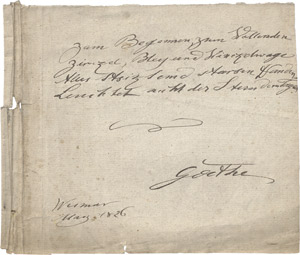 Zum Beginnen, zum Vollenden
Zirckel, Bley und Winckelwage
Alles stockt und starrt in Händen
Leuchtet nicht der Stern dem Tage
Goethe
Weimar
März 1826